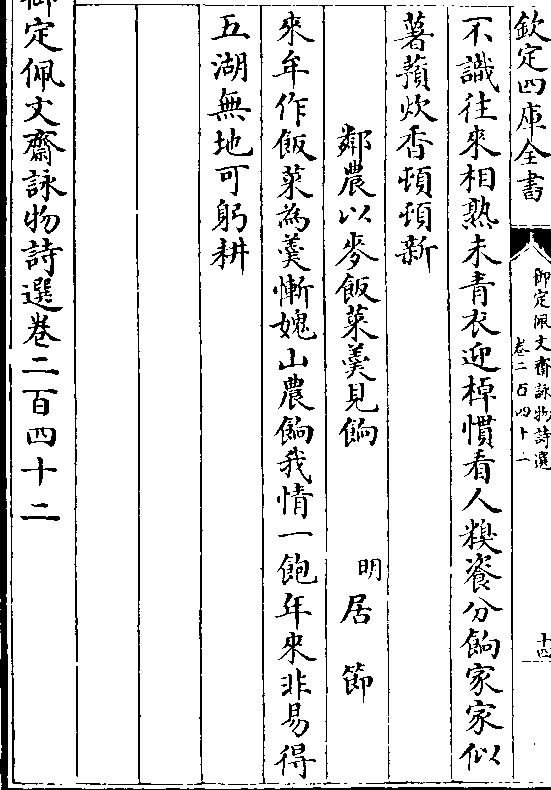 欽定四庫全書
御定佩文齋詠物詩選
卷二百四十二
十四
不識往來相熟未青衣迎棹慣看人糗餈分餉家家似
薯蕷炊香頓頓新
鄰農以麥飯菜羮見餉 明居節
來牟作飯菜為羮慚媿山農餉我情一飽年來非易得
五湖無地可躬耕
御定佩文齋詠物詩選卷二百四十二